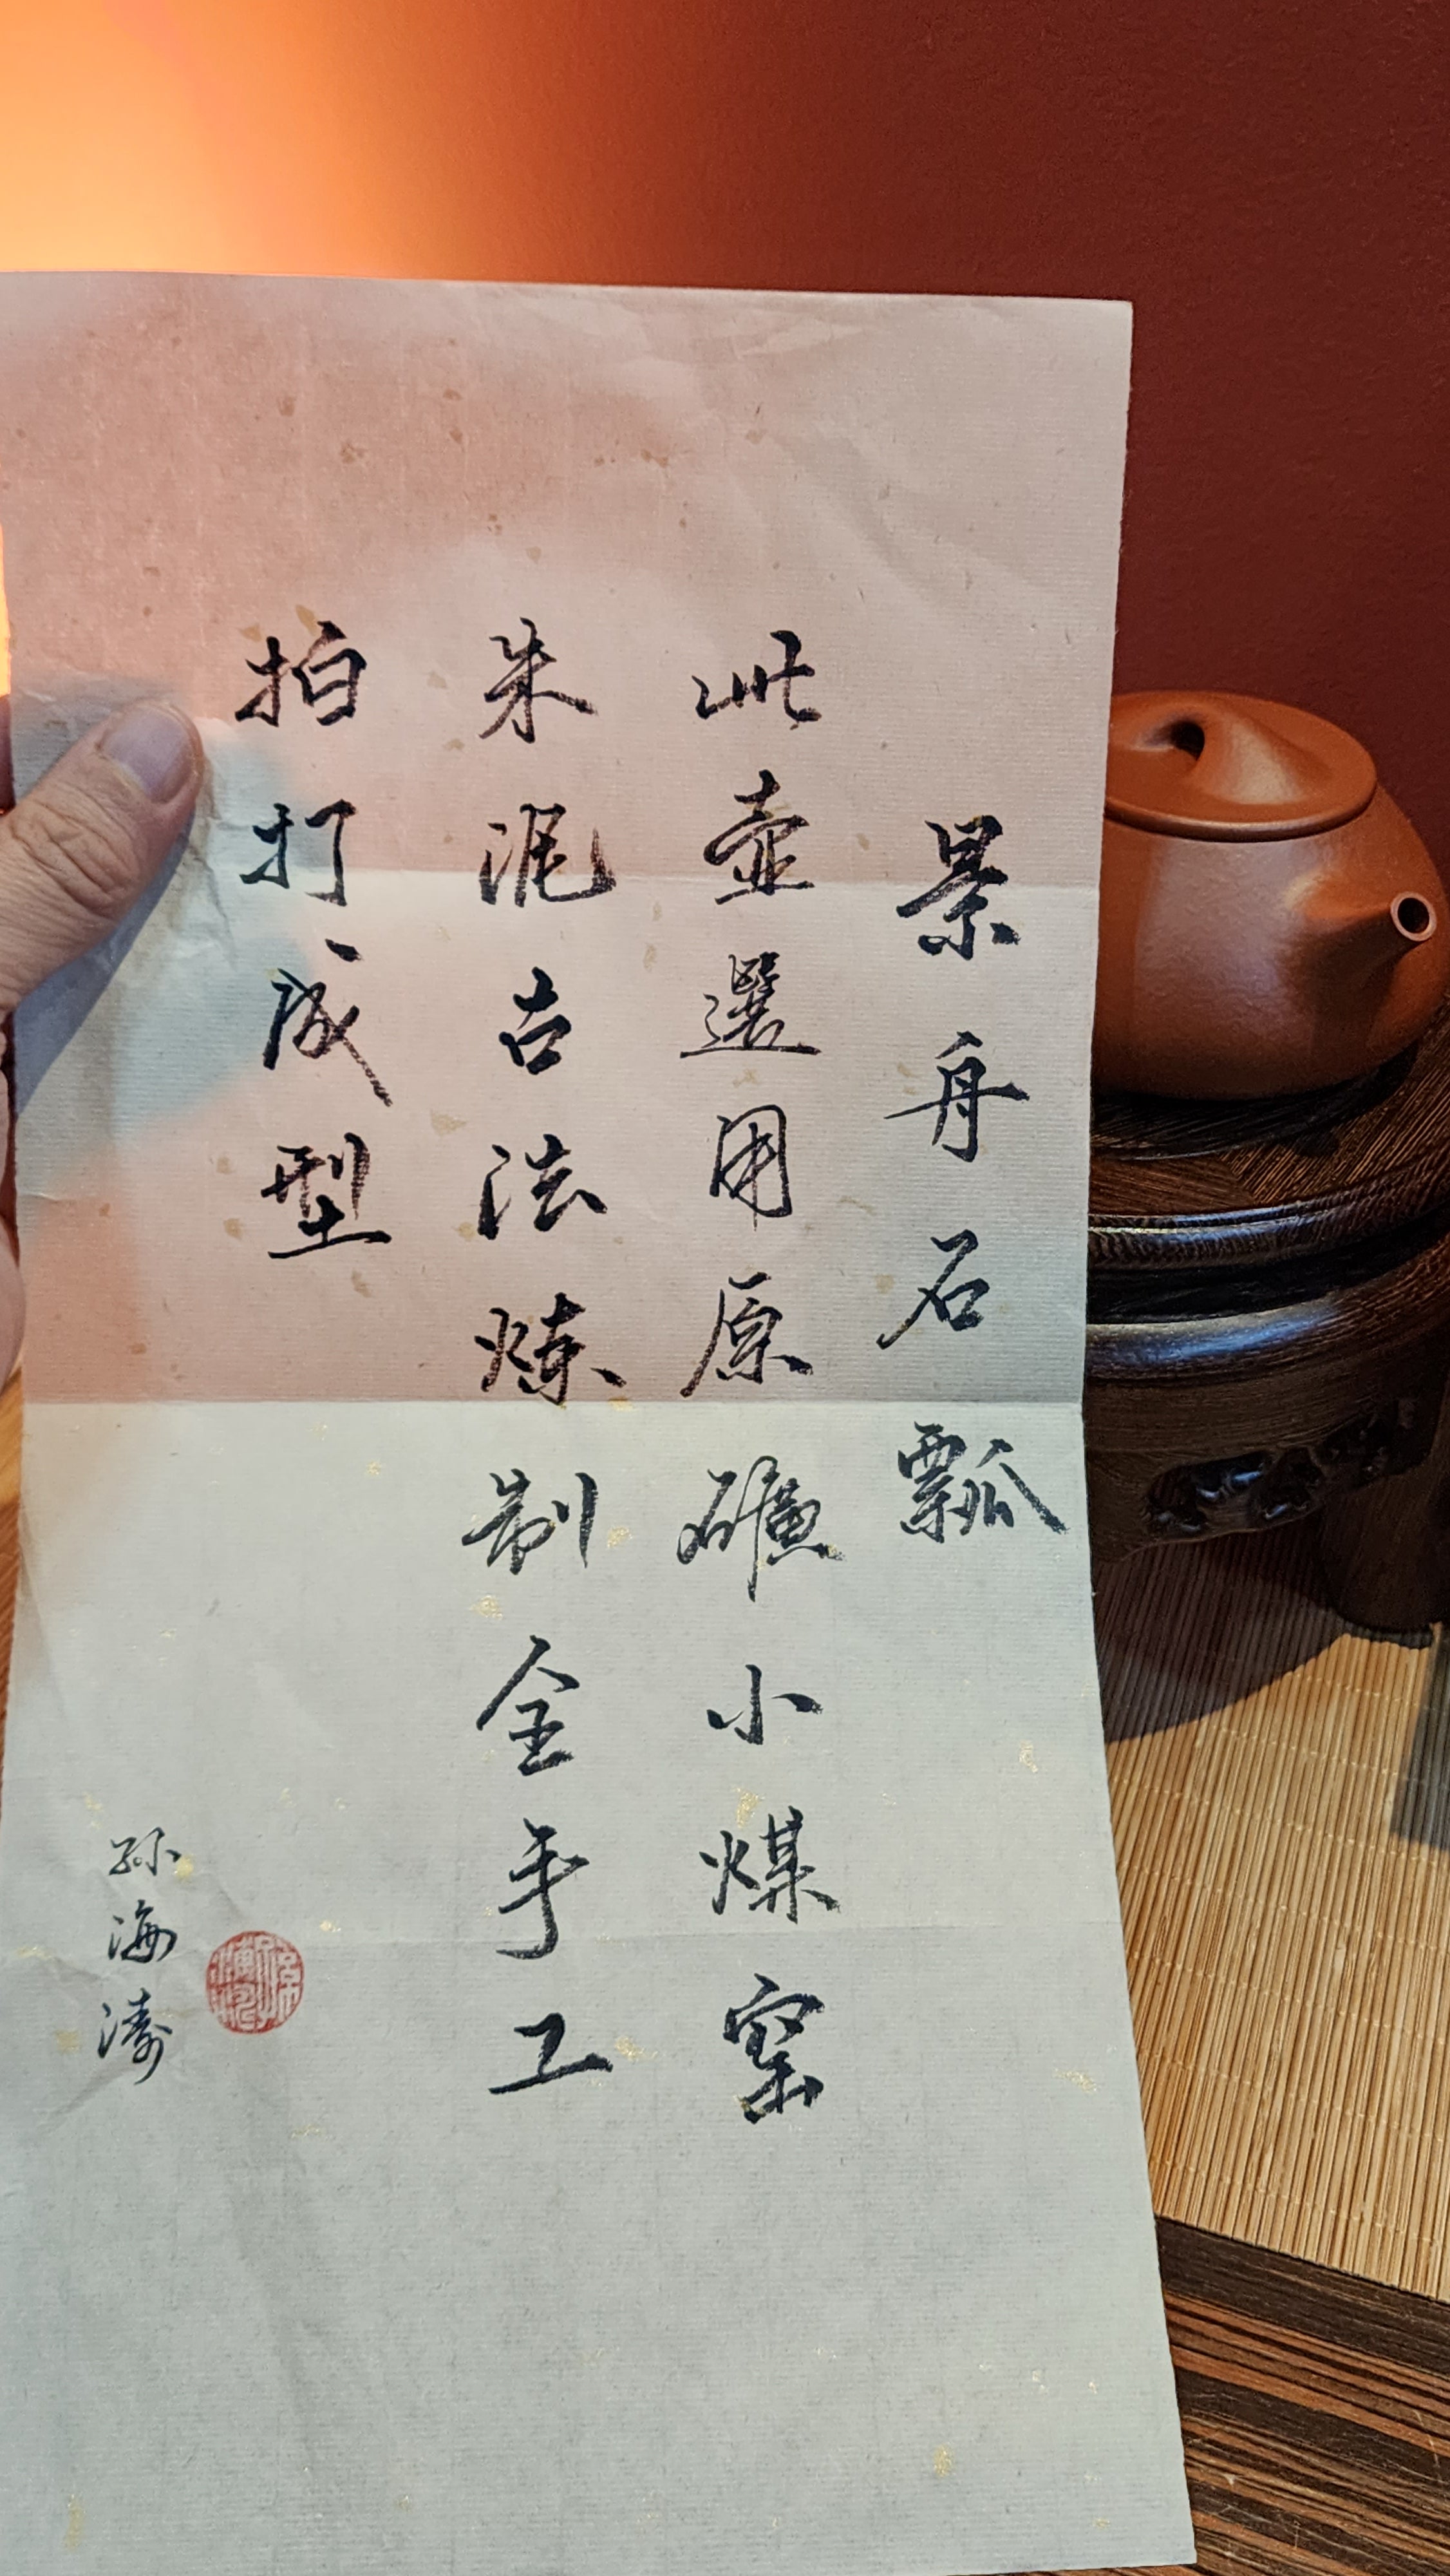 景舟石瓢
此壶選用原礦小煤窑
朱泥古法炼制全手工
拍打成型
孙海濤